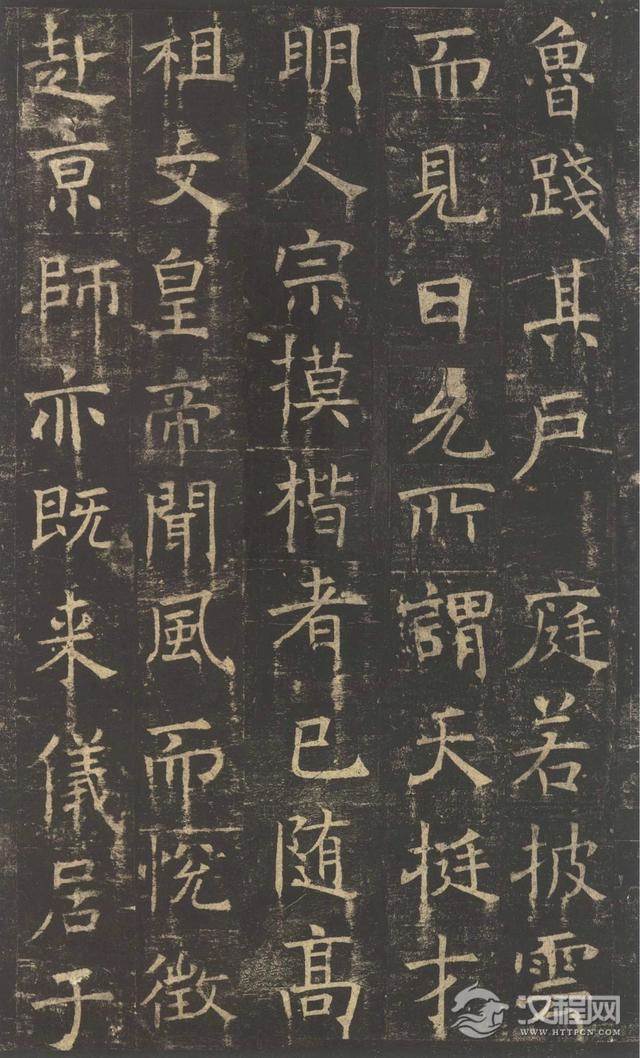 魯踐其戶庭若披雲
而見日允所謂天挺才
明人宗摸楷者已随高
祖文皇帝聞風而悅徵
赴京師亦既来儀居于
汉程网
WWW.HTTPCN.COM